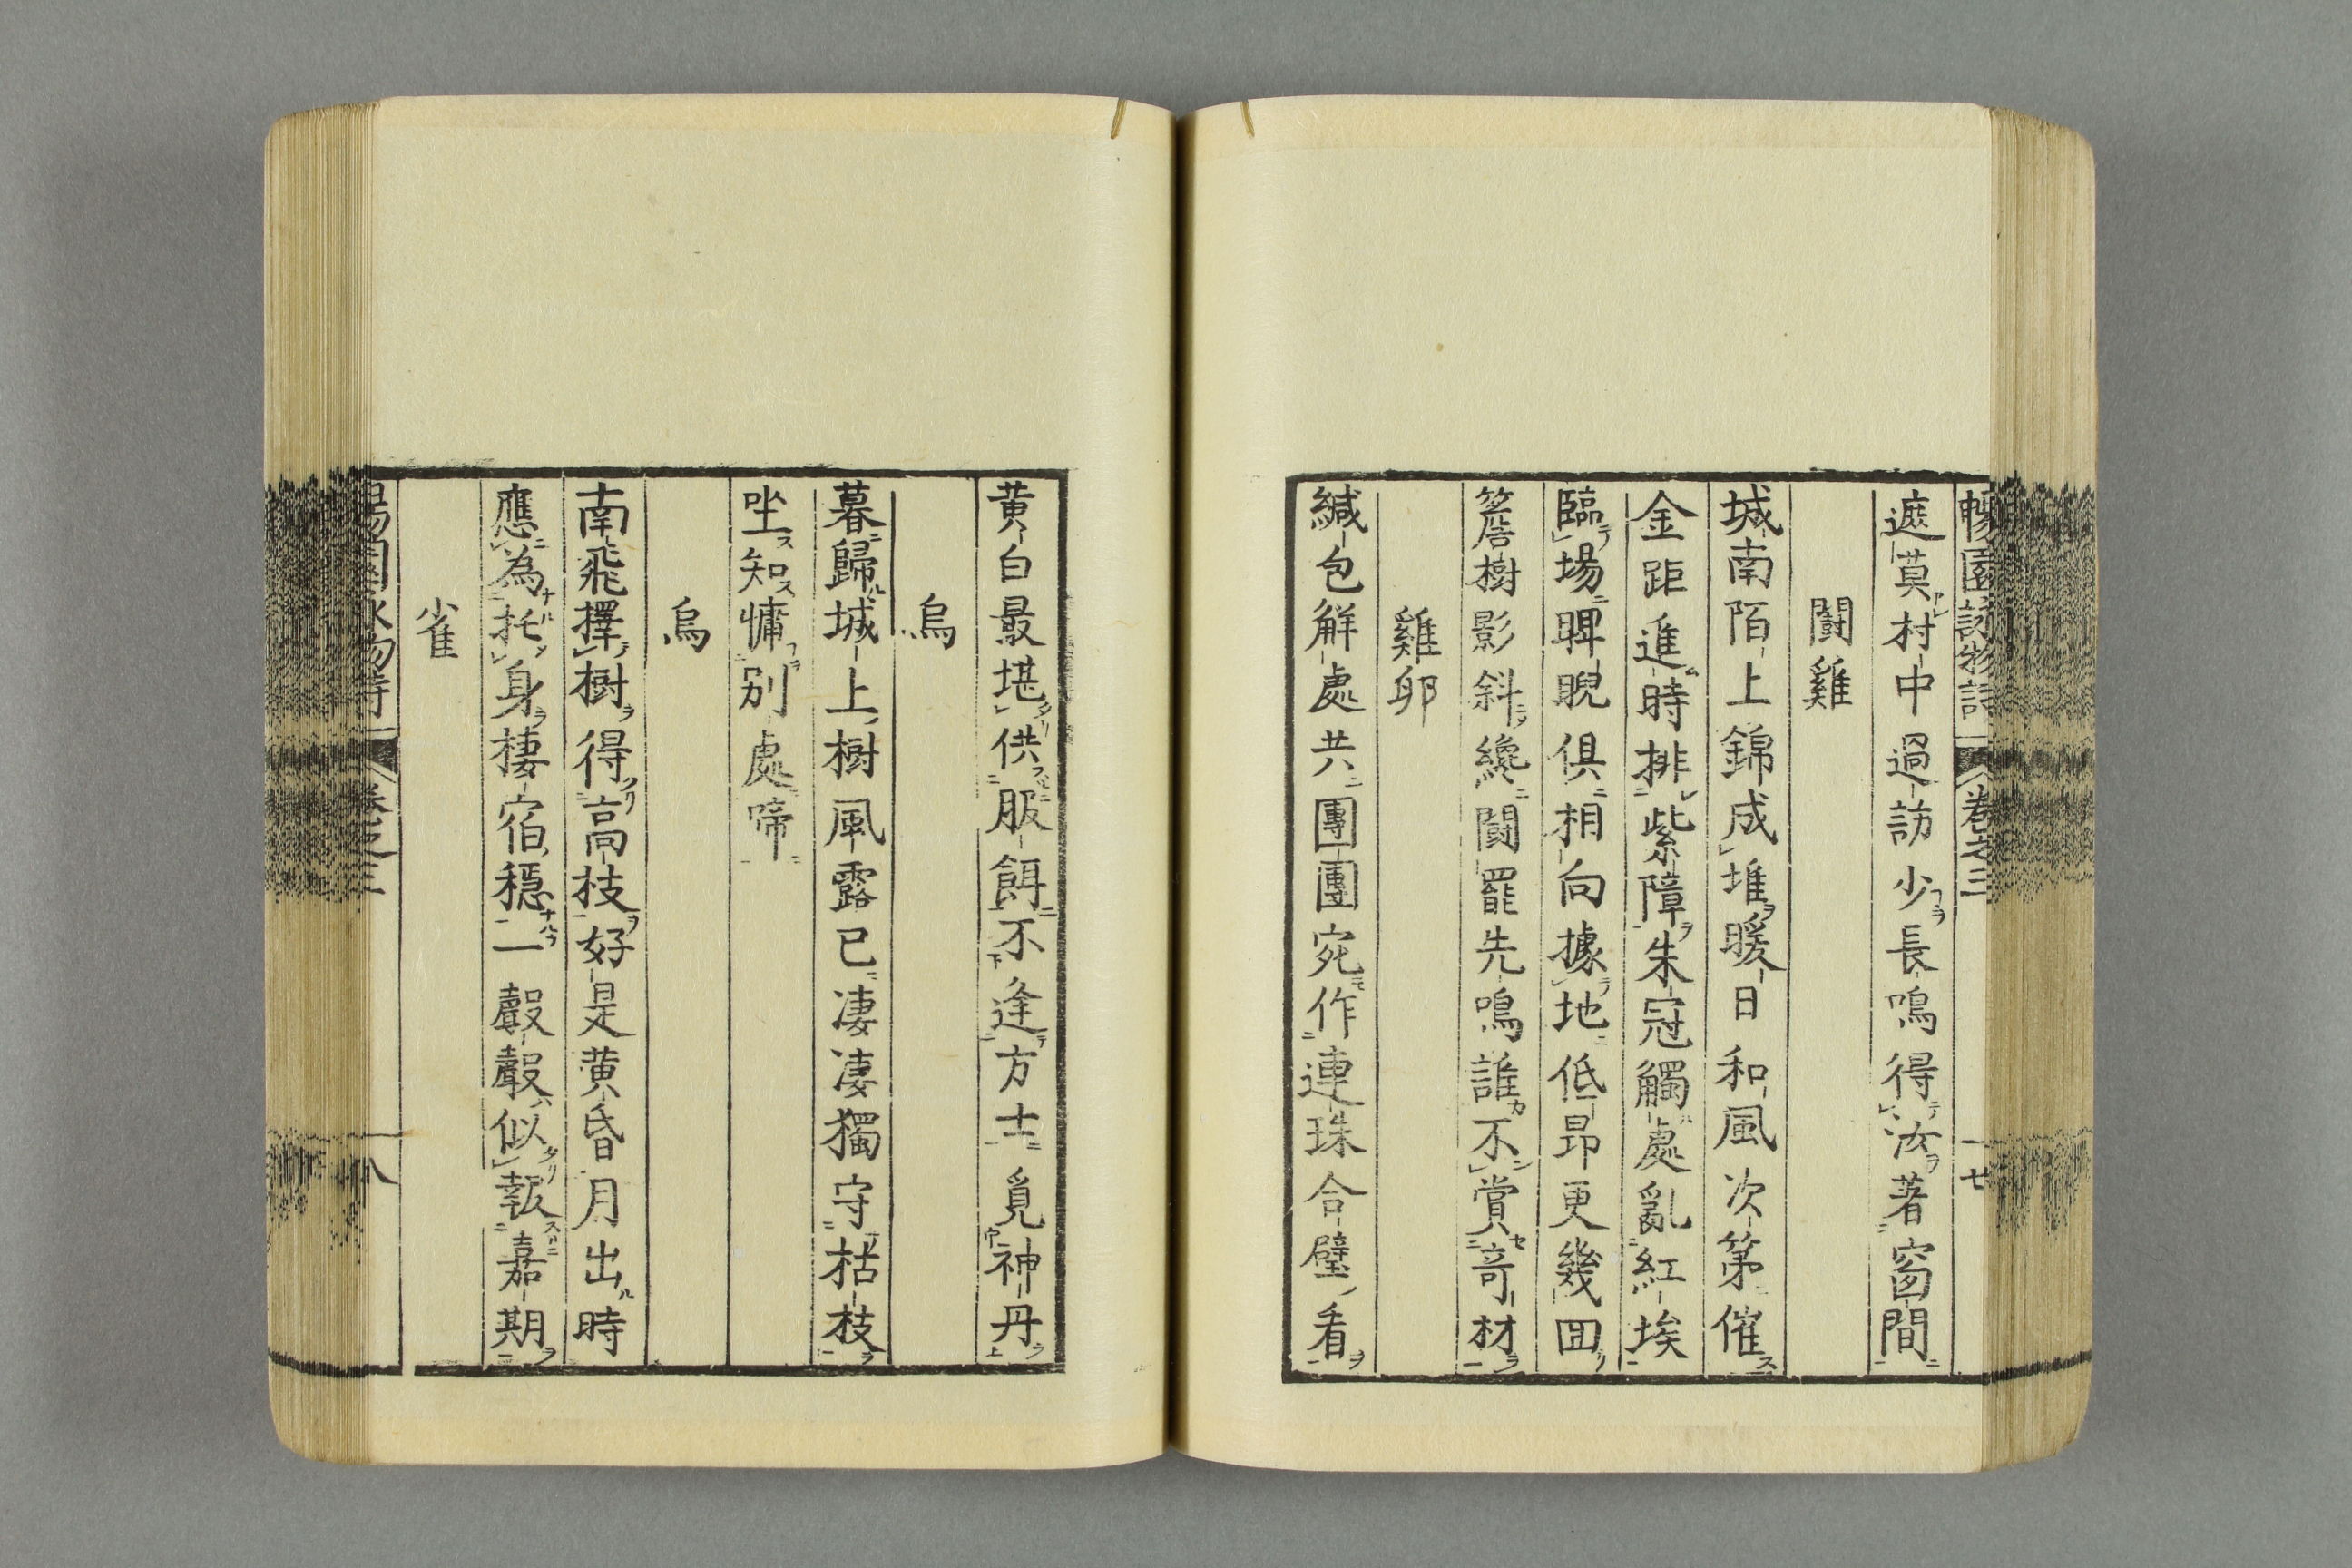 暢園詠物詩 卷之三 一七
遮莫村中過訪少長鳴得汝著窗間
鬪雞
城南陌上錦成堆暖日和風次第催
金距進時排紫障朱冠觸處亂紅埃
臨場睥睨俱相向據地低昂更幾回
簷樹影斜纔鬪罷先鳴誰不賞奇材
雞卵
緘包解處共團團宛作連珠合璧看
黄白最堪供服餌不逢方士覓神丹
烏
暮歸城上樹風露已凄凄獨守枯枝
坐知慵別處啼
烏
南飛擇樹得高枝好是黄昏月出時
應為托身棲宿穩一聲聲似報嘉期
雀
暢園詠物詩 卷之三 一八